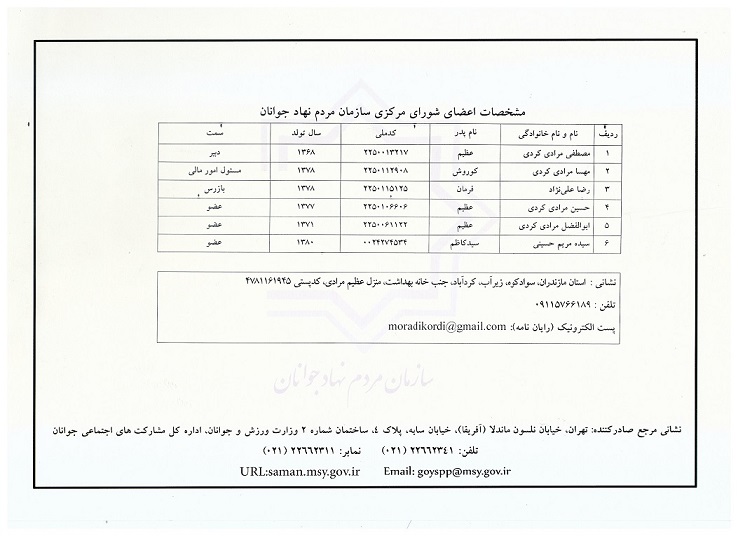 مشخصات اعضای شورای مرکزی سازمان مردم نهاد جوانان
ردیف نام و نام خانوادگی نام پدر کدملی سال تولد سمت
۱ مصطفی مرادی کردی عظیم ۲۲۵۰۰۱۳۲۱۷ ۱۳۶۸ دبیر
۲ مهسا مرادی کردی کوروش ۲۲۵۰۱۱۲۹۰۸ ۱۳۷۸ مسئول امور مالی
۳ رضا علی‌نژاد قرمان ۲۲۵۰۱۱۵۱۲۵ ۱۳۷۸ بازرس
۴ حسین مرادی کردی عظیم ۲۲۵۰۱۰۶۶۰۶ ۱۳۷۷ عضو
۵ ابوالفضل مرادی کردی عظیم ۲۲۵۰۰۶۱۱۲۲ ۱۳۷۱ عضو
۶ سیده مریم حسینی سیدکاظم ۰۰۲۴۲۷۴۵۳۴ ۱۳۸۰ عضو
نشانی : استان مازندران، سوادکوه، زیرآب، کردآباد، جنب خانه بهداشت، منزل عظیم مرادی، کدپستی ۴۷۸۱۱۶۱۹۴۵
تلفن : ۰۹۱۱۵۷۶۶۱۸۹
پست الکترونیک (رایان نامه): moradikordi@gmail.com
سازمان مردم نهاد جوانان
نشانی مرجع صادرکننده: تهران، خیابان نلسون ماندلا (آفریقا)، خیابان سایه، پلاک ٤، ساختمان شماره ۲ وزارت ورزش و جوانان، اداره کل مشارکت های اجتماعی جوانان
تلفن: ۲۲۶۶۲۳۴۱ (۰۲۱) نمابر: ۲۲۶۶۲۳۱۱ (۰۲۱)
URL:saman.msy.gov.ir Email: goyspp@msy.gov.ir